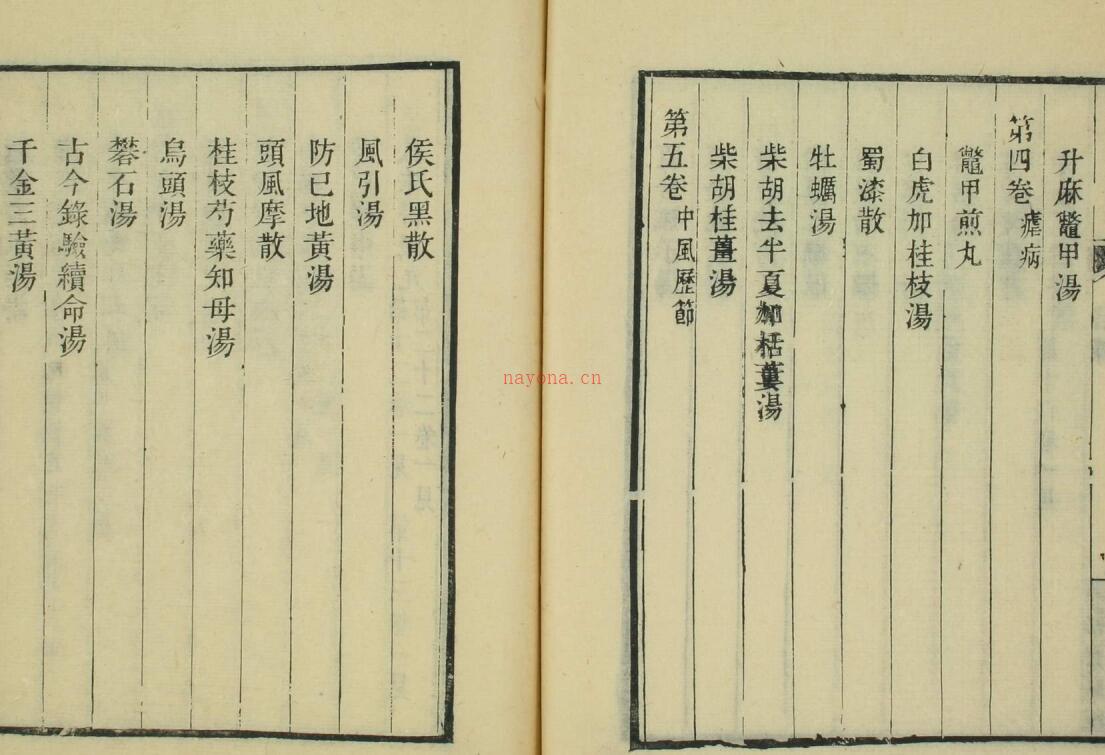 升麻鼈甲湯
第四卷 瘧病
鼈甲煎丸
白虎加桂枝湯
蜀漆散
牡蠣湯
柴胡去半夏加栝蔞湯
柴胡桂薑湯
第五卷 中風歷節
侯氏黑散
風引湯
防已地黃湯
頭風摩散
桂枝芍藥知母湯
烏頭湯
礬石湯
古今錄驗續命湯
千金三黃湯
nayona.cn